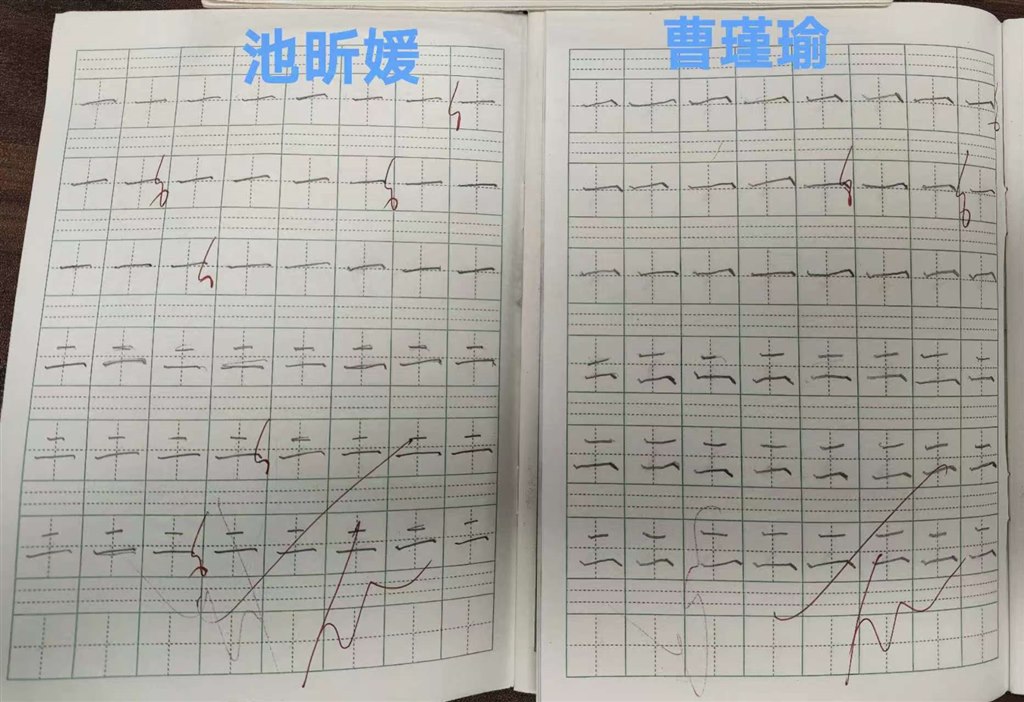 池昕媛
一 一 一 一 一 一 一 一
一 一 一 一 一 一 一 一
一 一 一 一 一 一 一 一
二 二 二 二 二 二 二 二
二 二 二 二 二 二 二 二
二 二 二 二 二 二 二 二
曹瑾瑜
一 一 一 一 一 一 一 一
一 一 一 一 一 一 一 一
一 一 一 一 一 一 一 一
二 二 二 二 二 二 二 二
二 二 二 二 二 二 二 二
二 二 二 二 二 二 二 二